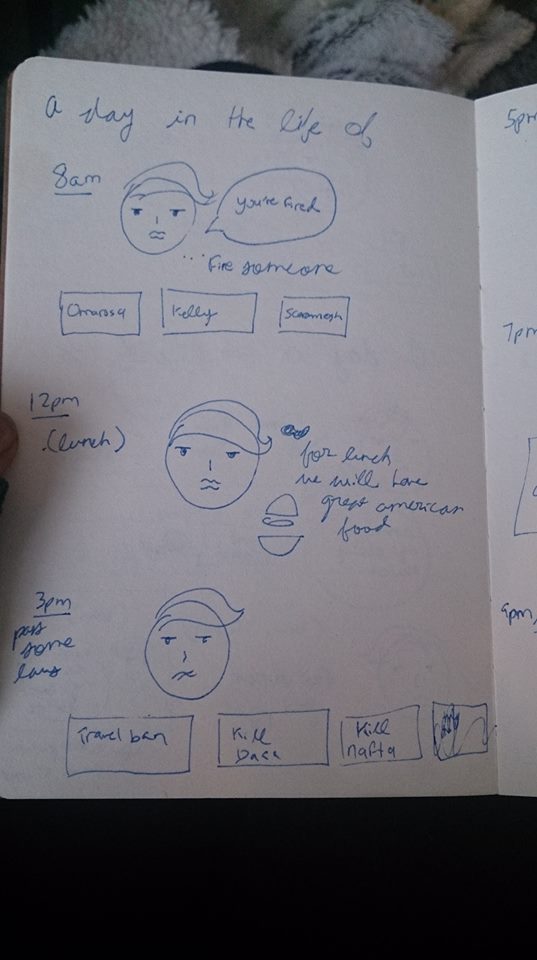 a day in the life of
8am
you're fired
... Fire someone
Omarosa
Kelly
12pm
(lunch)
for lunch
we will have
great american
food
3pm
pass
some
laws
Travel ban
Kill
Daca
Kill
nafta
5pm
7pm
9pm